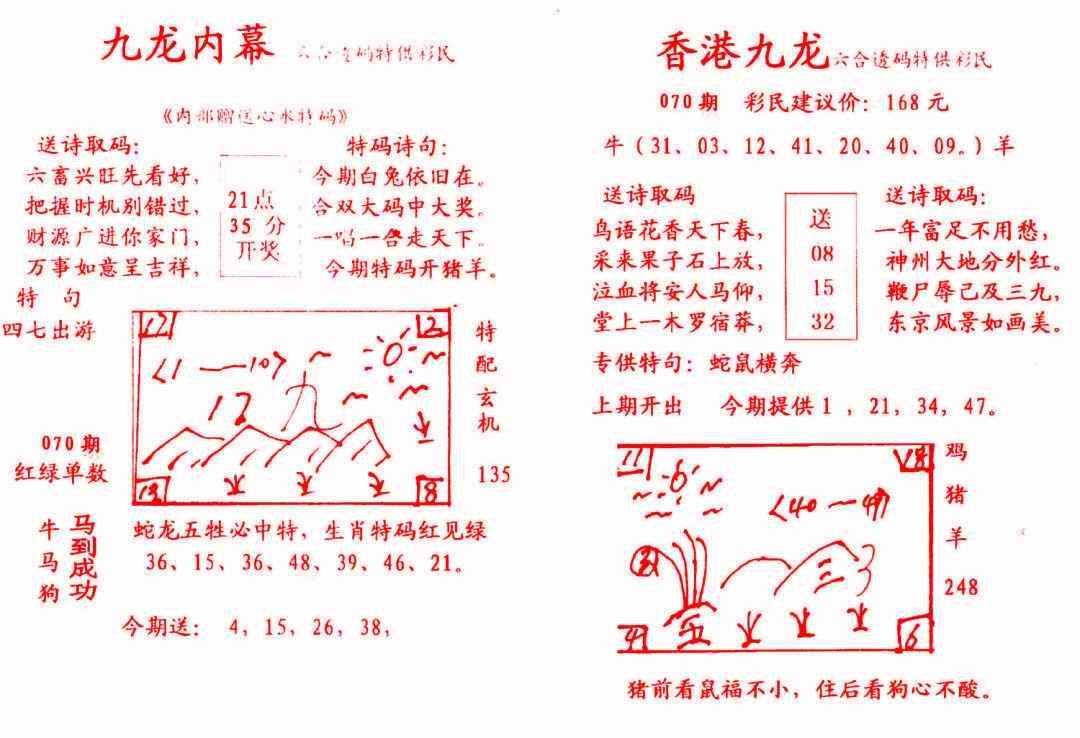 九龙内幕 六合透码特供彩民
《内部赠送心水特码》
送诗取码：
六畜兴旺先看好，
把握时机别错过，
财源广进你家门，
万事如意呈吉祥，
21点
35 分
开奖
特码诗句：
今期白兔依旧在。
合双大码中大奖。
一唱一合走天下。
今期特码开猪羊。
特 句
四七出游
070期
红绿单数
12
2
<1——10>
12 九
13
8
特
配
玄
机
135
牛
马
狗
马到成功
蛇龙五牲必中特，生肖特码红见绿
36、15、36、48、39、46、21。
今期送： 4，15，26，38，
香港九龙 六合透码特供彩民
070期 彩民建议价：168元
牛（31、03、12、41、20、40、09。）羊
送诗取码
鸟语花香天下春，
采来果子石上放，
泣血将安人马仰，
堂上一木罗宿莽，
送
08
15
32
送诗取码：
一年富足不用愁，
神州大地分外红。
鞭尸辱己及三九，
东京风景如画美。
专供特句：蛇鼠横奔
上期开出 今期提供1，21，34，47。
11
<40—49>
三
4
6
鸡
猪
羊
248
猪前看鼠福不小，住后看狗心不酸。